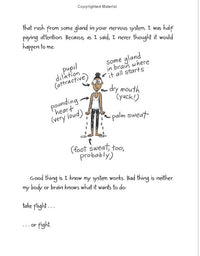 Copyrighted Material
that rush from some gland in your nervous system. I was half
paying attention. Because, as I said, I never thought it would
happen to me.
pupil
dilation
(attractive)
some gland
in brain where
it all starts
dry mouth
(yuck!)
pounding
heart
(very loud)
palm sweat
(foot sweat, too,
probably)
Good thing is I know my system works. Bad thing is neither
my body or brain knows what it wants to do:
take flight . . .
. . . or fight.